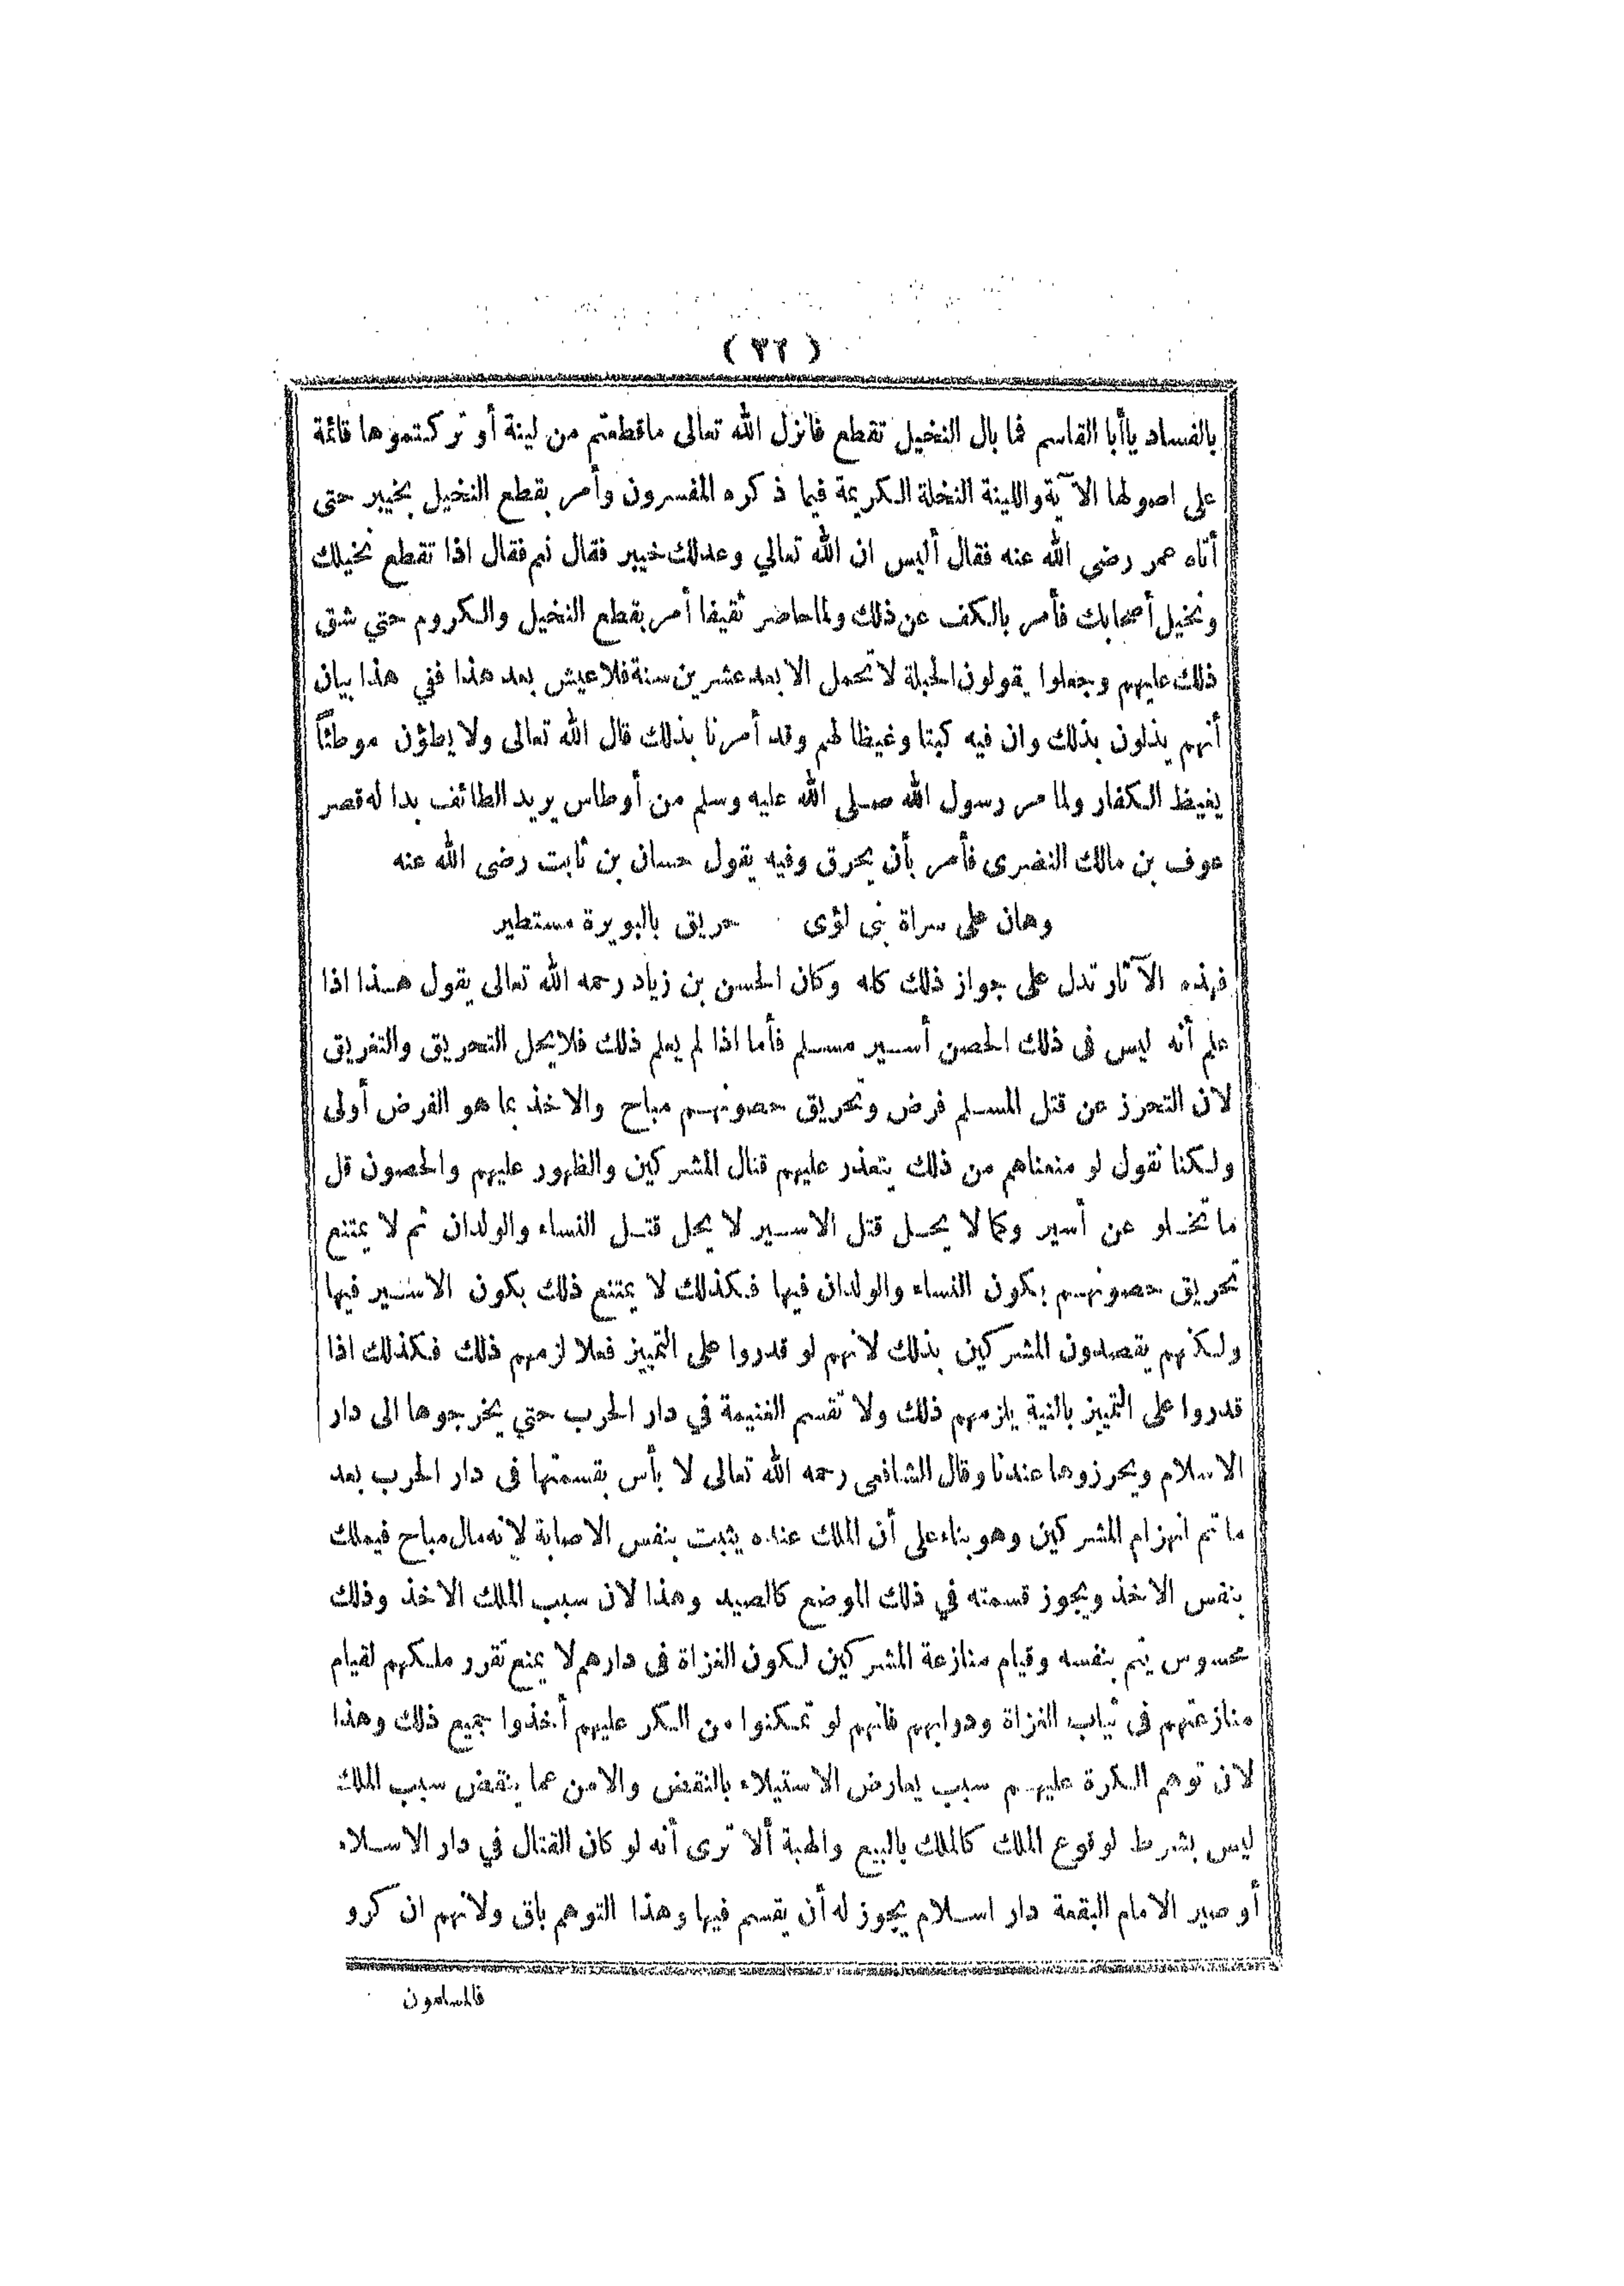 ( ٣٢ )
بالفساد يا أبا القاسم فما بال النخيل تقطع فانزل الله تعالى ماقطعتم من لينة أو تركتموها قائمة
على اصولها الآية واللينة النخلة الكريمة فيما ذكره المفسرون وأمر بقطع النخيل بخيبر حتى
أتاه عمر رضى الله عنه فقال أليس ان الله تعالي وعدلك خيبر فقال نعم فقال اذا تقطع نخيلك
ونخيل أصحابك فأمر بالكف عن ذلك ولما حاصر ثقيفا أمر بقطع النخيل والكروم حتي شق
ذلك عليهم وجعلوا يقولون الحبلة لا تحمل الا بعد عشرين سنة فلا عيش بعد هذا ففي هذا بيان
أنهم يذلون بذلك وان فيه كبتا وغيظا لهم وقد أمرنا بذلك قال الله تعالى ولا يطؤن موطئاً
يغيظ الكفار ولما مر رسول الله صلى الله عليه وسلم من أوطاس يريد الطائف بدا له قصر
عوف بن مالك النضرى فأمر بأن يحرق وفيه يقول حسان بن ثابت رضى الله عنه
وهان على سراة بنى لؤى حريق بالبويرة مستطير
فهذه الآثار تدل على جواز ذلك كله وكان الحسن بن زياد رحمه الله تعالى يقول هذا اذا
علم أنه ليس فى ذلك الحصن أسير مسلم فأما اذا لم يعلم ذلك فلا يحل التحريق والتغريق
لان التحرز عن قتل المسلم فرض وتحريق حصونهم مباح والاخذ بما هو الفرض أولى
ولكنا نقول لو منعناهم من ذلك يتعذر عليهم قتال المشركين والظهور عليهم والحصون قل
ما تخلو عن أسير وكما لا يحل قتل الاسير لا يحل قتل النساء والولدان ثم لا يمتنع
تحريق حصونهم بكون النساء والولدان فيها فكذلك لا يمتنع ذلك بكون الاسير فيها
ولكنهم يقصدون المشركين بذلك لانهم لو قدروا على التمييز فعلا لزمهم ذلك فكذلك اذا
قدروا على التمييز بالنية يلزمهم ذلك ولا تقسم الغنيمة في دار الحرب حتي يخرجوها الى دار
الاسلام ويحرزوها عندنا وقال الشافعى رحمه الله تعالى لا بأس بقسمتها فى دار الحرب بعد
ما تم انهزام المشركين وهو بناء على أن الملك عنده يثبت بنفس الاصابة لانه مال مباح فيملك
بنفس الاخذ ويجوز قسمته في ذلك الموضع كالصيد وهذا لان سبب الملك الاخذ وذلك
محسوس يتم بنفسه وقيام منازعة المشركين لكون الغزاة فى دارهم لا يمنع تقرر ملكهم لقيام
منازعتهم فى ثياب الغزاة ودوابهم فانهم لو تمكنوا من الكر عليهم أخذوا جميع ذلك وهذا
لان توهم الكرة عليهم سبب يعارض الاستيلاء بالنقض والامن عما ينقض سبب الملك
ليس بشرط لوقوع الملك كالملك بالبيع والهبة ألا ترى أنه لو كان القتال في دار الاسلام
أو صير الامام البقعة دار اسلام يجوز له أن يقسم فيها وهذا التوهم باق ولانهم ان كرو
فالمسلمون